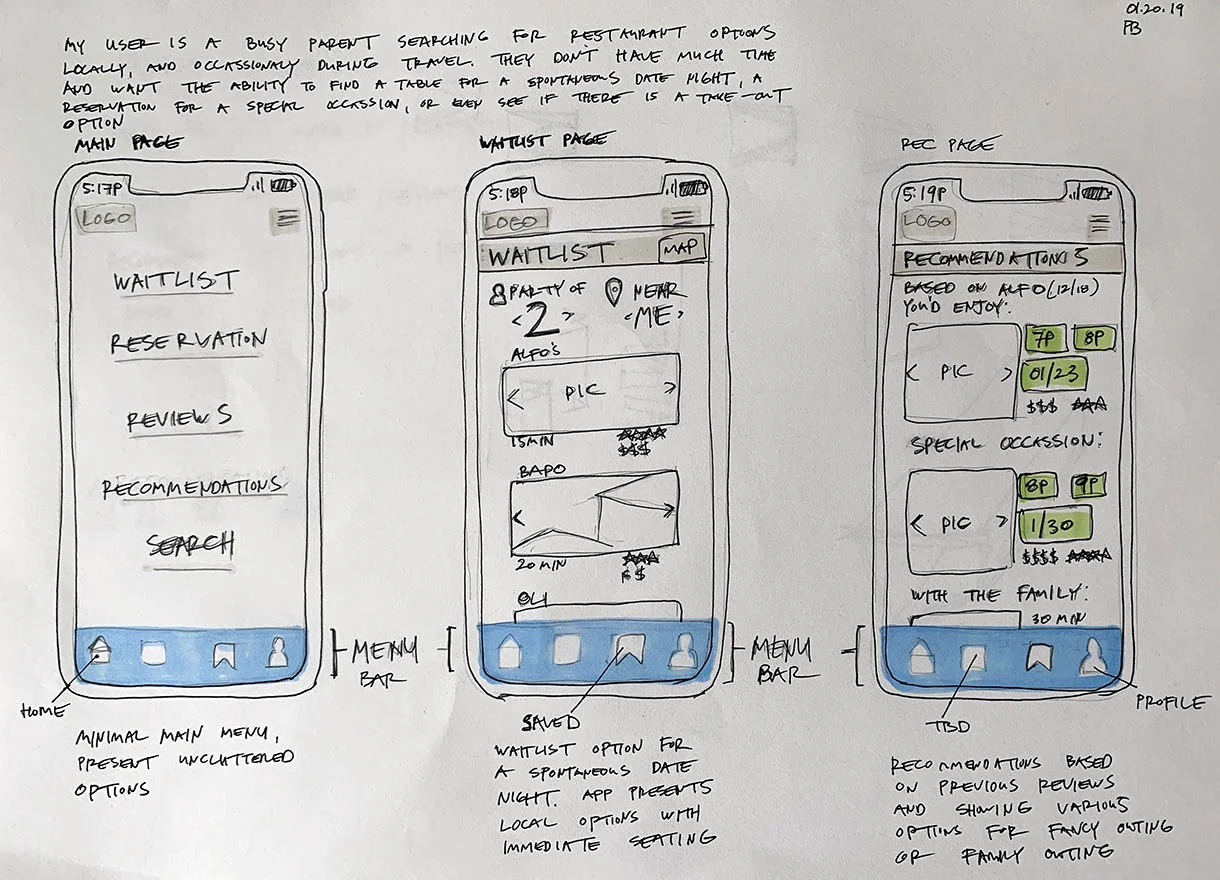 01.20.19
PB
MY USER IS A BUSY PARENT SEARCHING FOR RESTAURANT OPTIONS
LOCALLY, AND OCCASSIONALY DURING TRAVEL. THEY DON'T HAVE MUCH TIME
AND WANT THE ABILITY TO FIND A TABLE FOR A SPONTANEOUS DATE NIGHT, A
RESERVATION FOR A SPECIAL OCCASSION, OR EVEN SEE IF THERE IS A TAKE-OUT
OPTION
MAIN PAGE
5:17P
LOGO
WAITLIST
RESERVATION
REVIEWS
RECOMMENDATIONS
SEARCH
MENU
BAR
HOME
MINIMAL MAIN MENU,
PRESENT UNCLUTTERED
OPTIONS
WAITLIST PAGE
5:18P
LOGO
WAITLIST MAP
PARTY OF NEAR
<2> <ME>
ALFO'S
< PIC >
15 MIN
$$$
BAPO
< >
20 MIN
$$
OLI
MENU
BAR
SAVED
WAITLIST OPTION FOR
A SPONTANEOUS DATE
NIGHT. APP PRESENTS
LOCAL OPTIONS WITH
IMMEDIATE SEATING
REC PAGE
5:19P
LOGO
RECOMMENDATIONS
BASED ON ALFO (12/18)
YOU'D ENJOY:
< PIC > 7P 8P
01/23
$$$
SPECIAL OCCASSION:
< PIC > 8P 9P
1/30
$$$$
WITH THE FAMILY:
30 MIN
TBD
PROFILE
RECOMMENDATIONS BASED
ON PREVIOUS REVIEWS
AND SHOWING VARIOUS
OPTIONS FOR FANCY OUTING
OR FAMILY OUTING